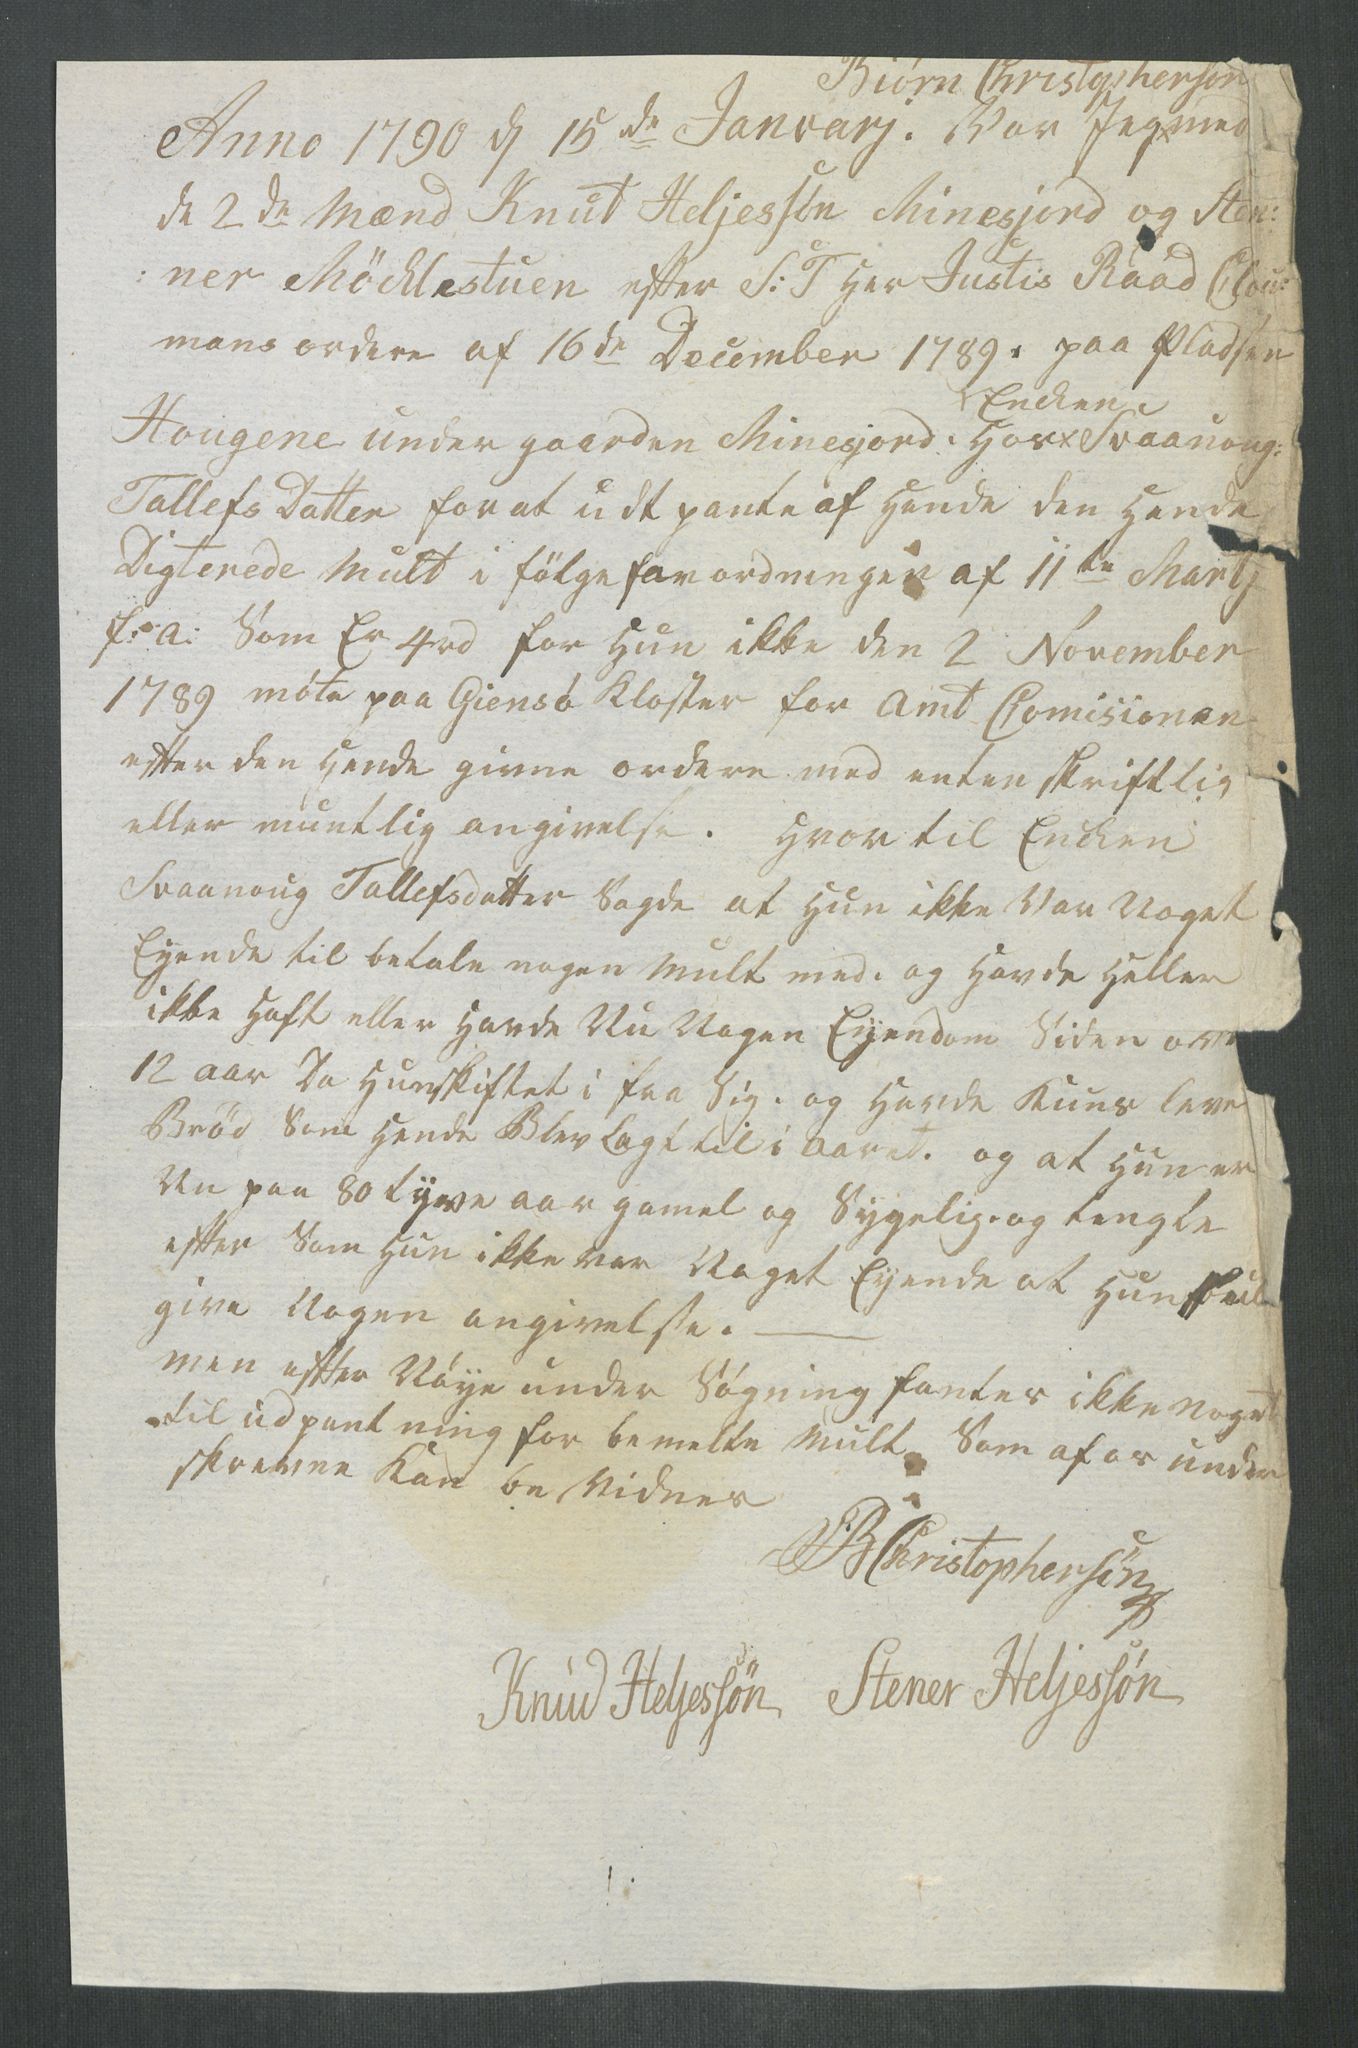 Biørn Christophersøn
Anno 1790 d 15de Januarj. Var Jeg x med
de 2de Mænd Knut Heljessøn Minesjord og Sten:
:ner Möcklestuen efter S: T Her Justis Raad Clou:
mans ordere af 16de December 1789. paa Pladsen
Encken
Hougene under gaarden Minesjord. Hos x Svaanoug:
Tallefs Datter for at udt pante af Hende den Hende
Digterede Mult i følge forordningen af 11te Martj
f: a: Som Er 4rd for Hun ikke den 2 November
1789 møte paa Giensø Kloster for Amt Comisionen
efter den Hende givne ordere med enten skriftlig
eller muntlig angivelse. Hvor til Encken
Svaanoug Tallefsdatter Sagde at Hun ikke Var Noget
Eyende til betale nogen Mult med. og Havde Heller
ikke Haft eller Havde Nu Nogen Eyendom Siden
12 aar Da Hun skiftet i fra Sig. og Havde Kuns leve
Brød Som Hende Blev Lagt til i Aaret. og at Hun er
Nu paa 80 tyve aar gamel og Sygelig. og tengte
efter Som Hun ikke var Noget Eyende at Hun skul
give Nogen angivelse.
men efter Nøye under Søgning fantes ikke noget
til udpantning for bemelte Mult. Som af os under
skrevne Kan be Vidnes
B Christophersøn
Knud Heljessön Stener Heljessøn